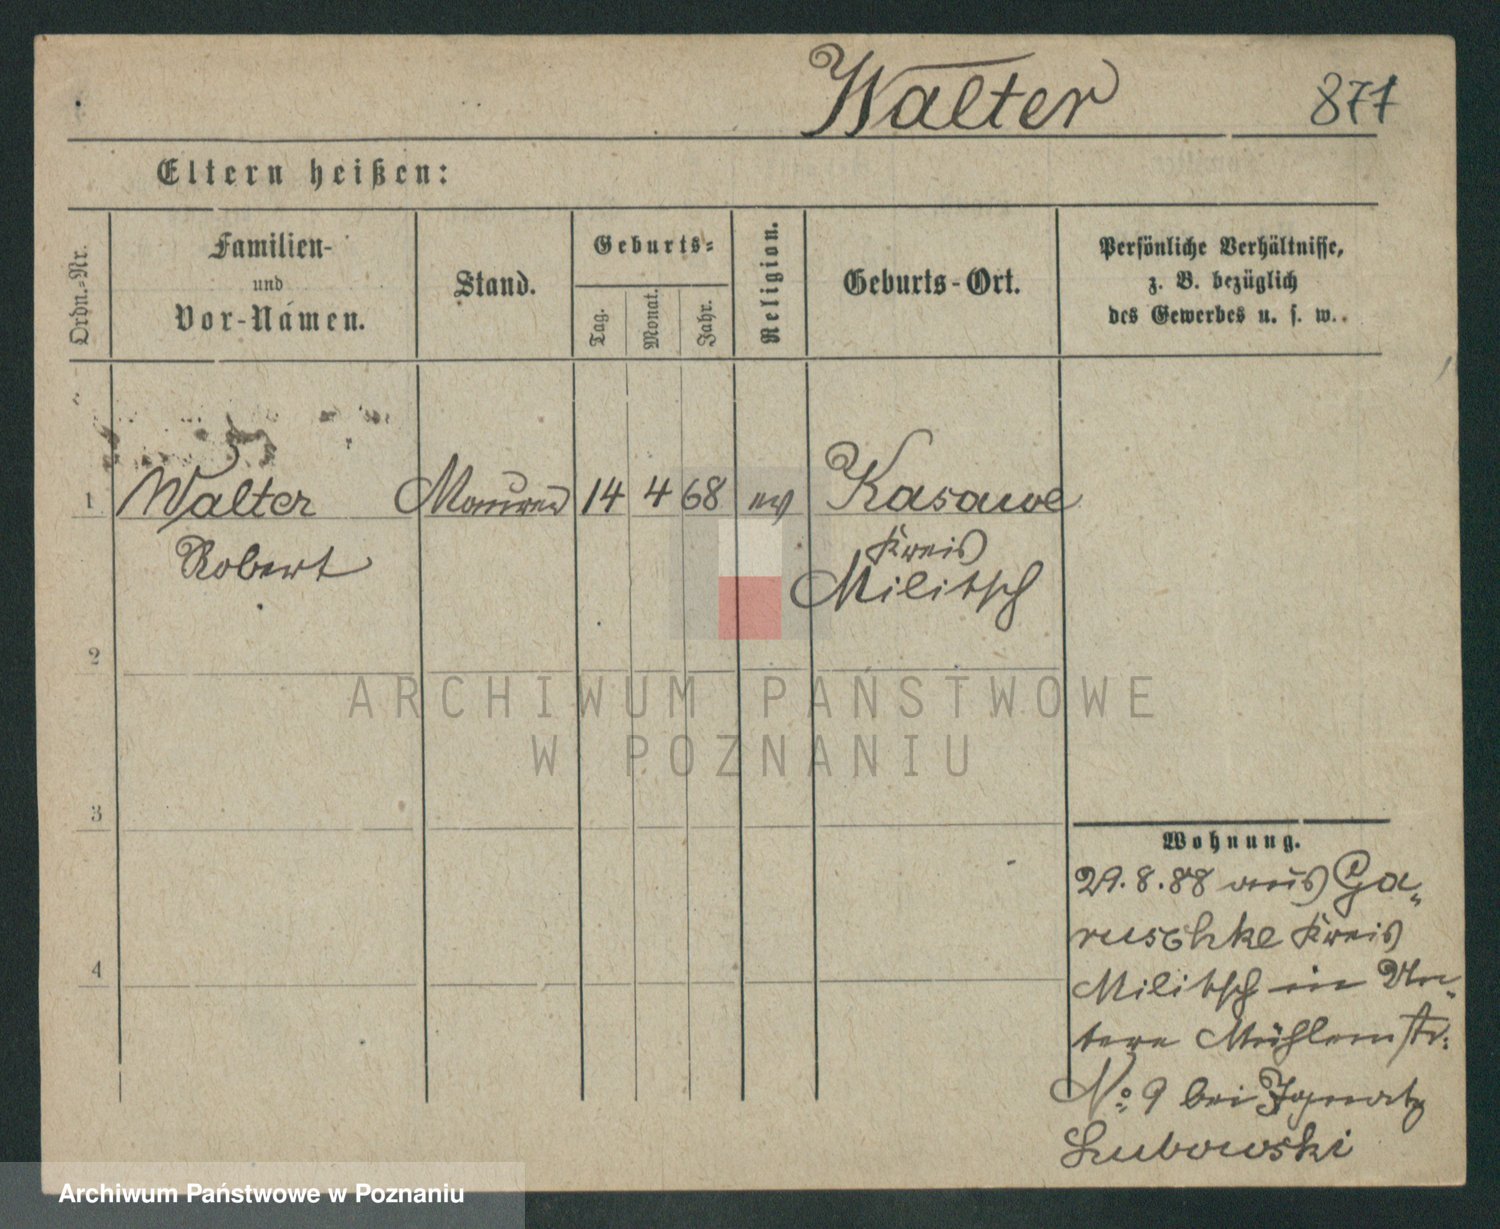 Walter 871
Eltern heißen:
Ordn.-Nr.
Familien-
und
Vor-Namen.
Stand.
Geburts-
Tag.
Monat.
Jahr.
Religion.
Geburts-Ort.
Persönliche Verhältnisse,
z. B. bezüglich
des Gewerbes u. s. w.
1 Walter Maurer 14 4 68 ev Kasawe
Robert
Kreis
Militsch
2
3
4
Wohnung.
29.8.88 aus Ga-
ruschke Kreis
Militsch in Un-
tere Mühlenstr.
No: 9 bei Ignatz
Lubowski
ARCHIWUM PAŃSTWOWE
W POZNANIU
Archiwum Państwowe w Poznaniu